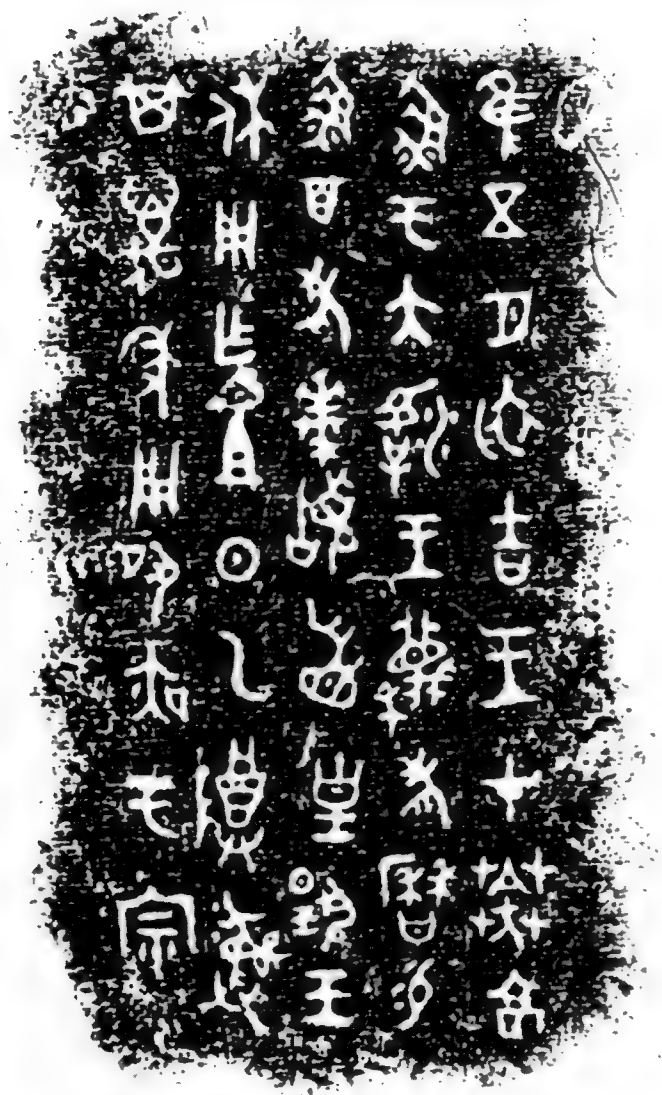 隹五月初吉王才𦱤京
魚于大滹王蔑老曆易
魚百老拜𩒨首皇揚王
休用乍且日乙尊彝
其萬年用夙夜于宗